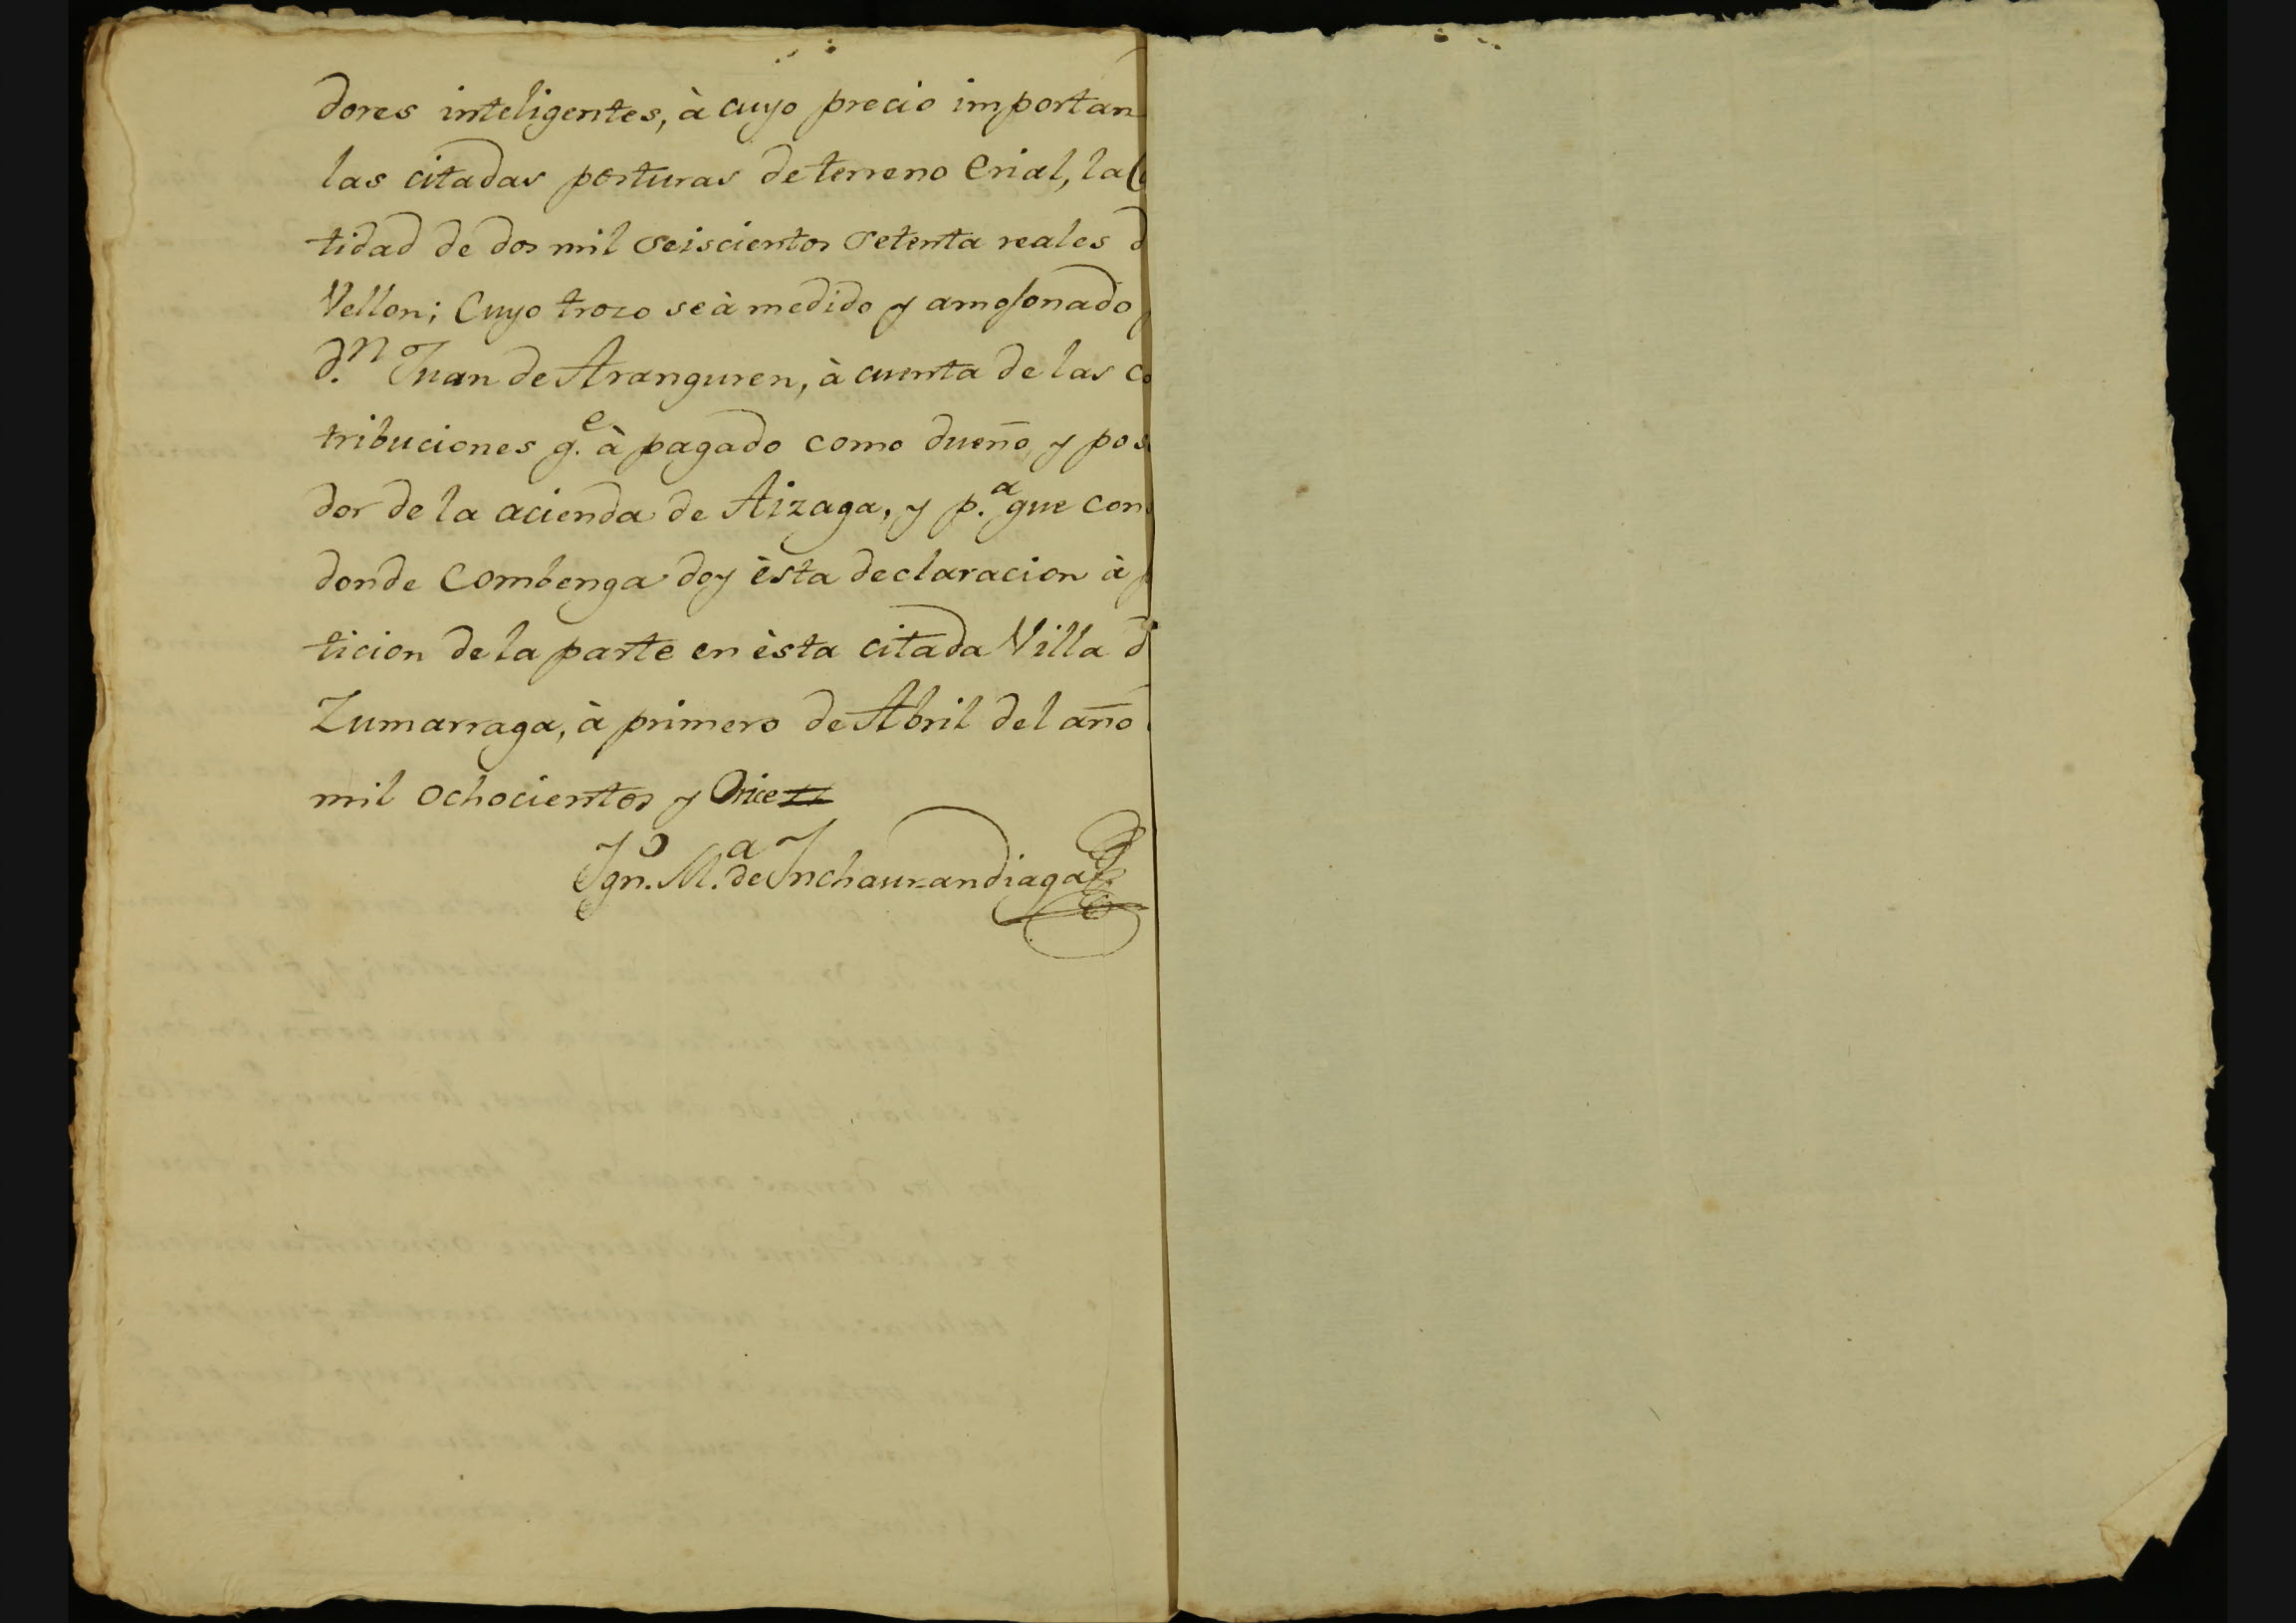 dores inteligentes, à cuyo precio importan
las citadas posturas de terreno Erial, la
tidad de dos mil seiscientos setenta reales d
Vellon; Cuyo trozo se à medido y amojonado
d.n Juan de Aranguren, à cuenta de las co
tribuciones q.e à pagado como dueño, y pos
dor de la acienda de Aizaga, y p.a que con
donde Combenga doy èsta declaracion à p
ticion de la parte en èsta citada Villa d
Zumarraga, à primero de Abril del año
mil ochocientos y Once
Ygn.o M.a de Inchaurandiaga